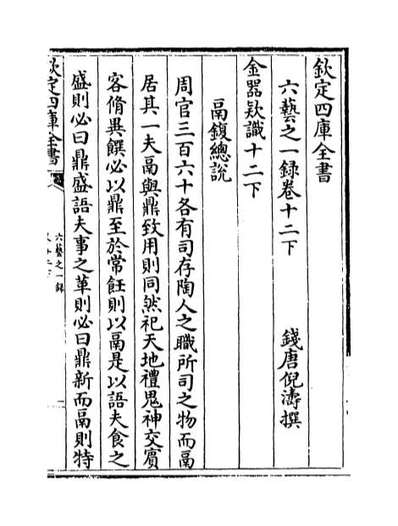 欽定四庫全書
六藝之一録卷十二下
錢唐倪濤撰
金器欵識十二下
鬲鍑總說
周官三百六十各有司存陶人之職所司之物而鬲
居其一夫鬲與鼎致用則同然祀天地禮鬼神交賓
客脩異饌必以鼎至於常飪則以鬲是以語夫食之
盛則必曰鼎盛語夫事之革則必曰鼎新而鬲則特
欽定四庫全書
六藝之一録